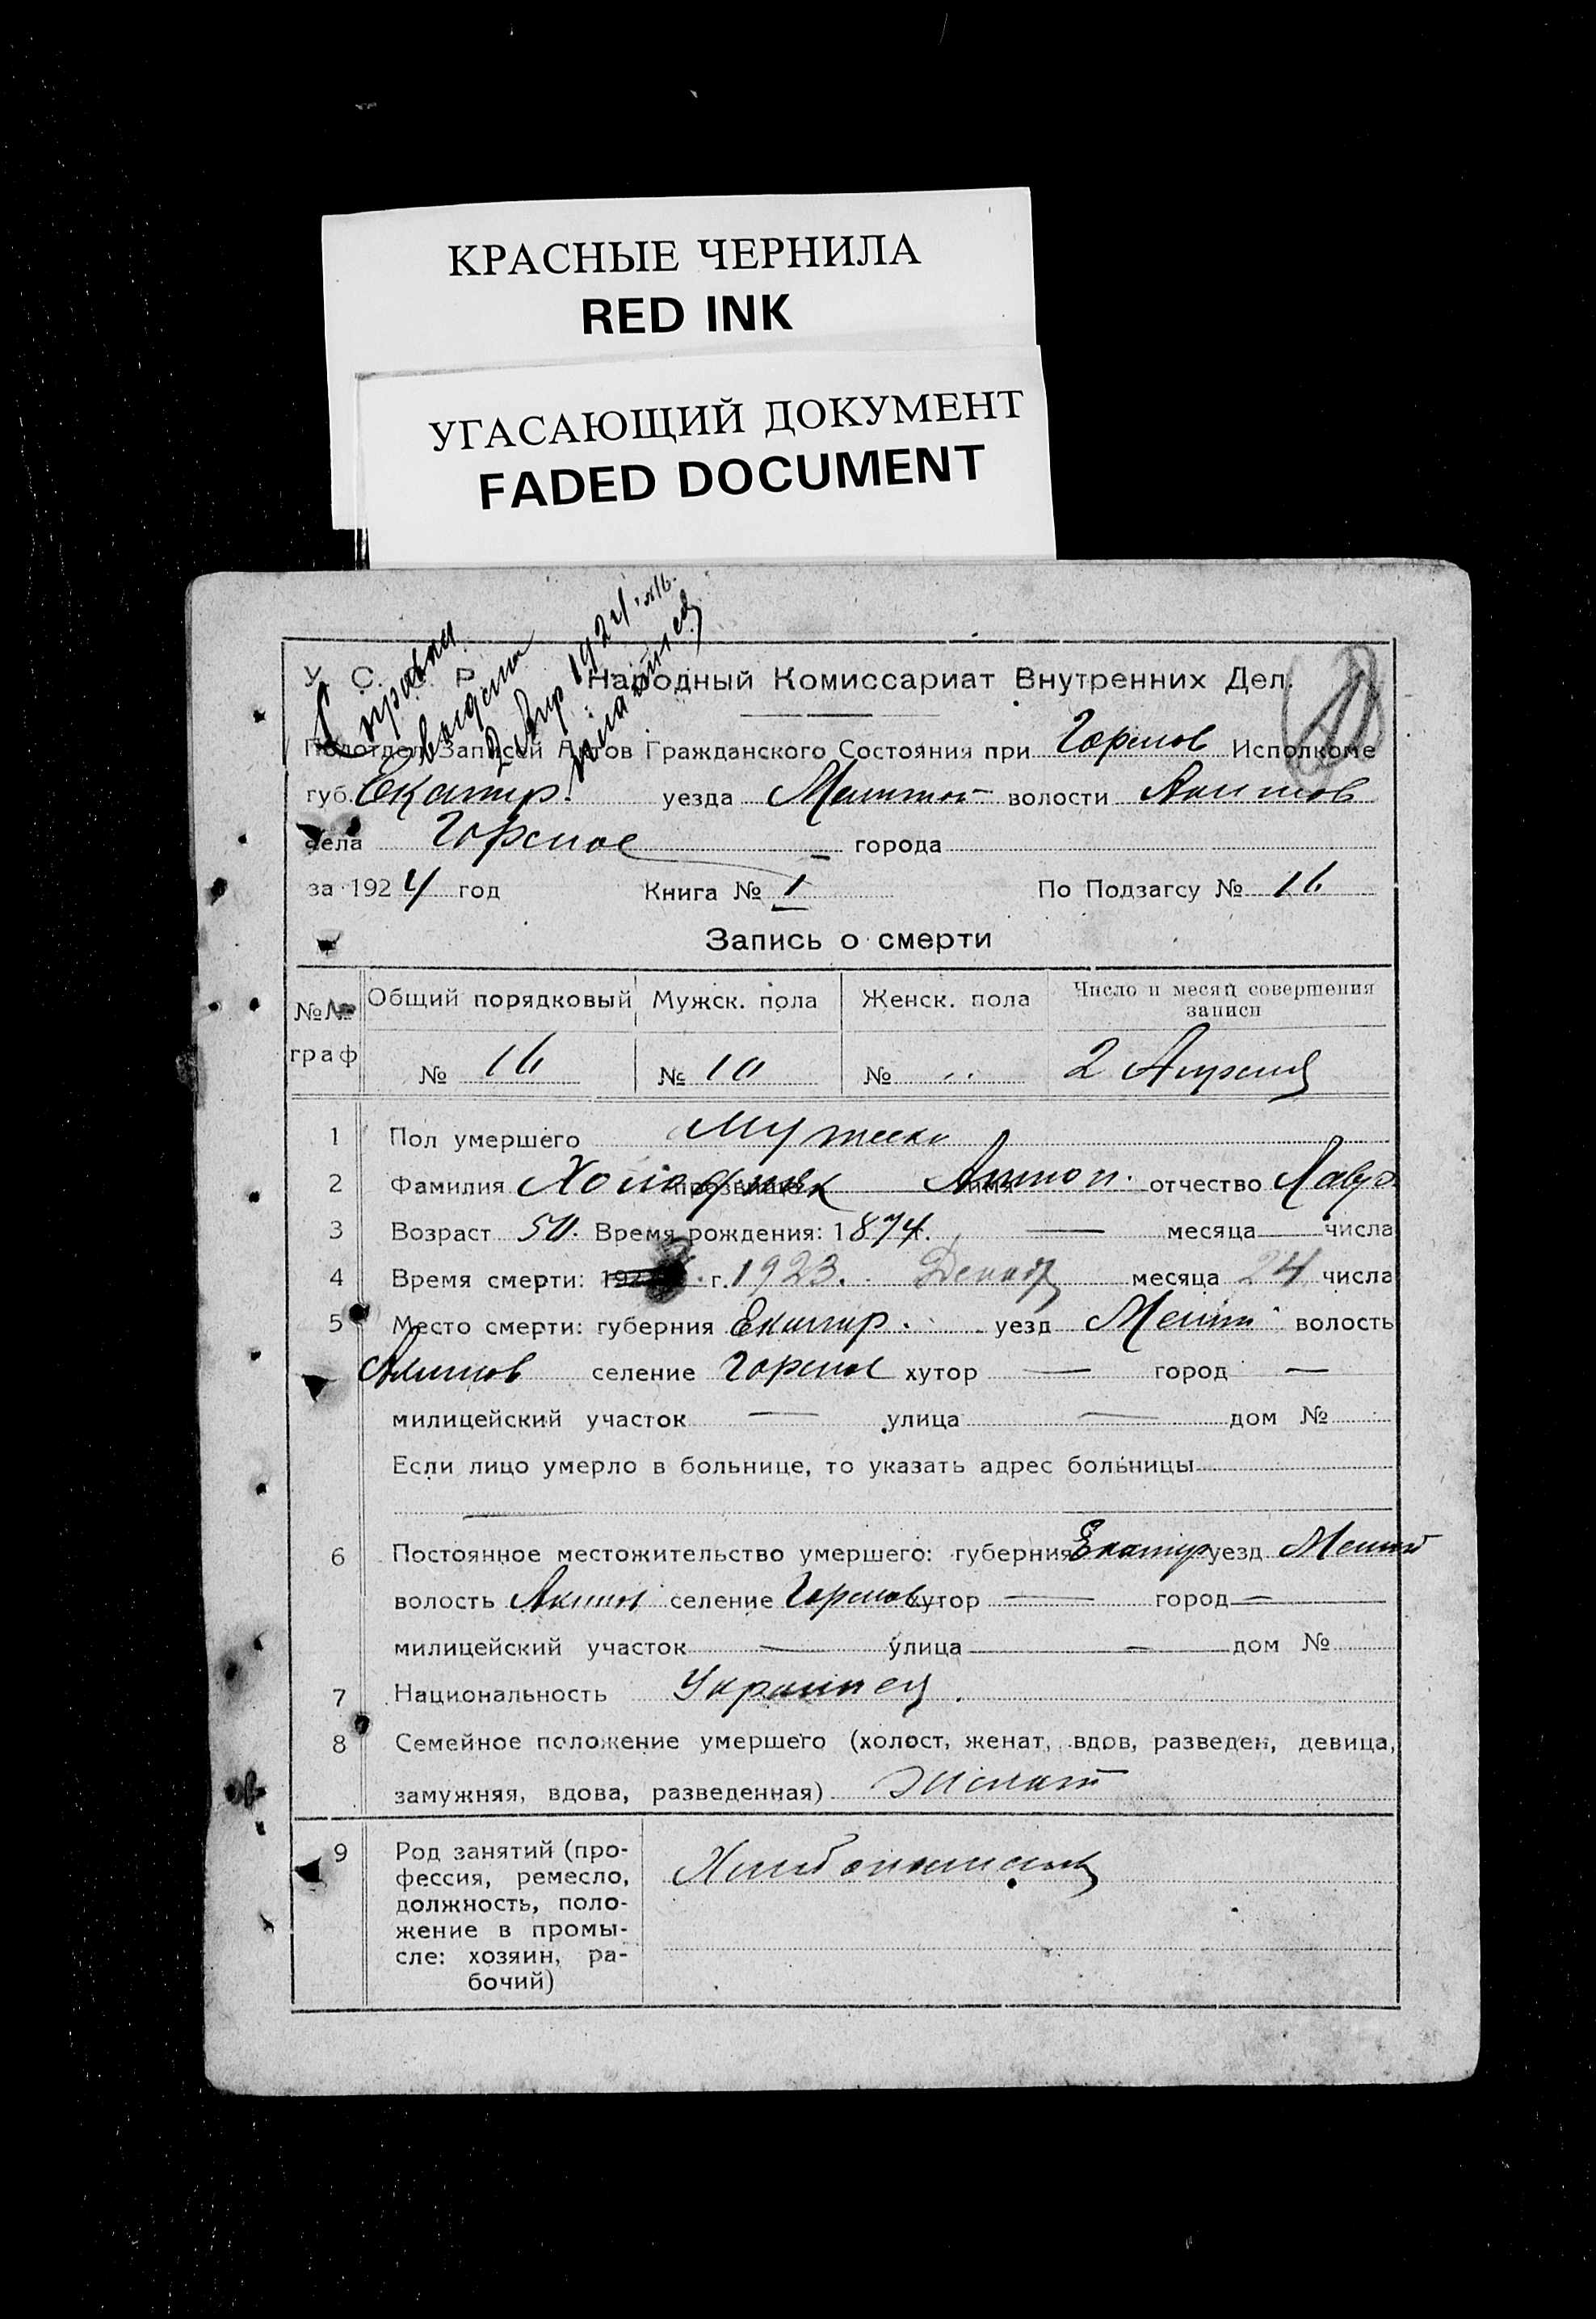 КРАСНЫЕ ЧЕРНИЛА
RED INK
УГАСАЮЩИЙ ДОКУМЕНТ
FADED DOCUMENT
Справка
выдана
2 Апр 1924 №16.
У. С. С. Р. Народный Комиссариат Внутренних Дел.
Подотдел Записей Актов Гражданского Состояния при Горьков Исполкоме
губ. Екатер. уезда Мелит волости Акимов
села Горькое города
за 1924 год Книга № 1 По Подзагсу № 16
Запись о смерти
№№ граф Общий порядковый Мужск. пола Женск. пола Число и месяц совершения записи
№ 16 № 10 № 2 Апреля
1 Пол умершего Мужеск
2 Фамилия Холодняк прозвище имя Антон. отчество Лавр
3 Возраст 50. Время рождения: 1874г. — месяца — числа
4 Время смерти: 192 г. 1923. Декабр месяца 24 числа
5 Место смерти: губерния Екатер. уезд Мелит волость
Акимов селение Горькое хутор — город —
милицейский участок — улица — дом №
Если лицо умерло в больнице, то указать адрес больницы
—
6 Постоянное местожительство умершего: губерния Екатер уезд Мелит
волость Акимов селение Горьков хутор — город —
милицейский участок — улица — дом №
7 Национальность Украинец.
8 Семейное положение умершего (холост, женат, вдов, разведен, девица,
замужняя, вдова, разведенная) Женат
9 Род занятий (про-
фессия, ремесло,
должность, поло-
жение в промы-
сле: хозяин, ра-
бочий)
Хлебопашец